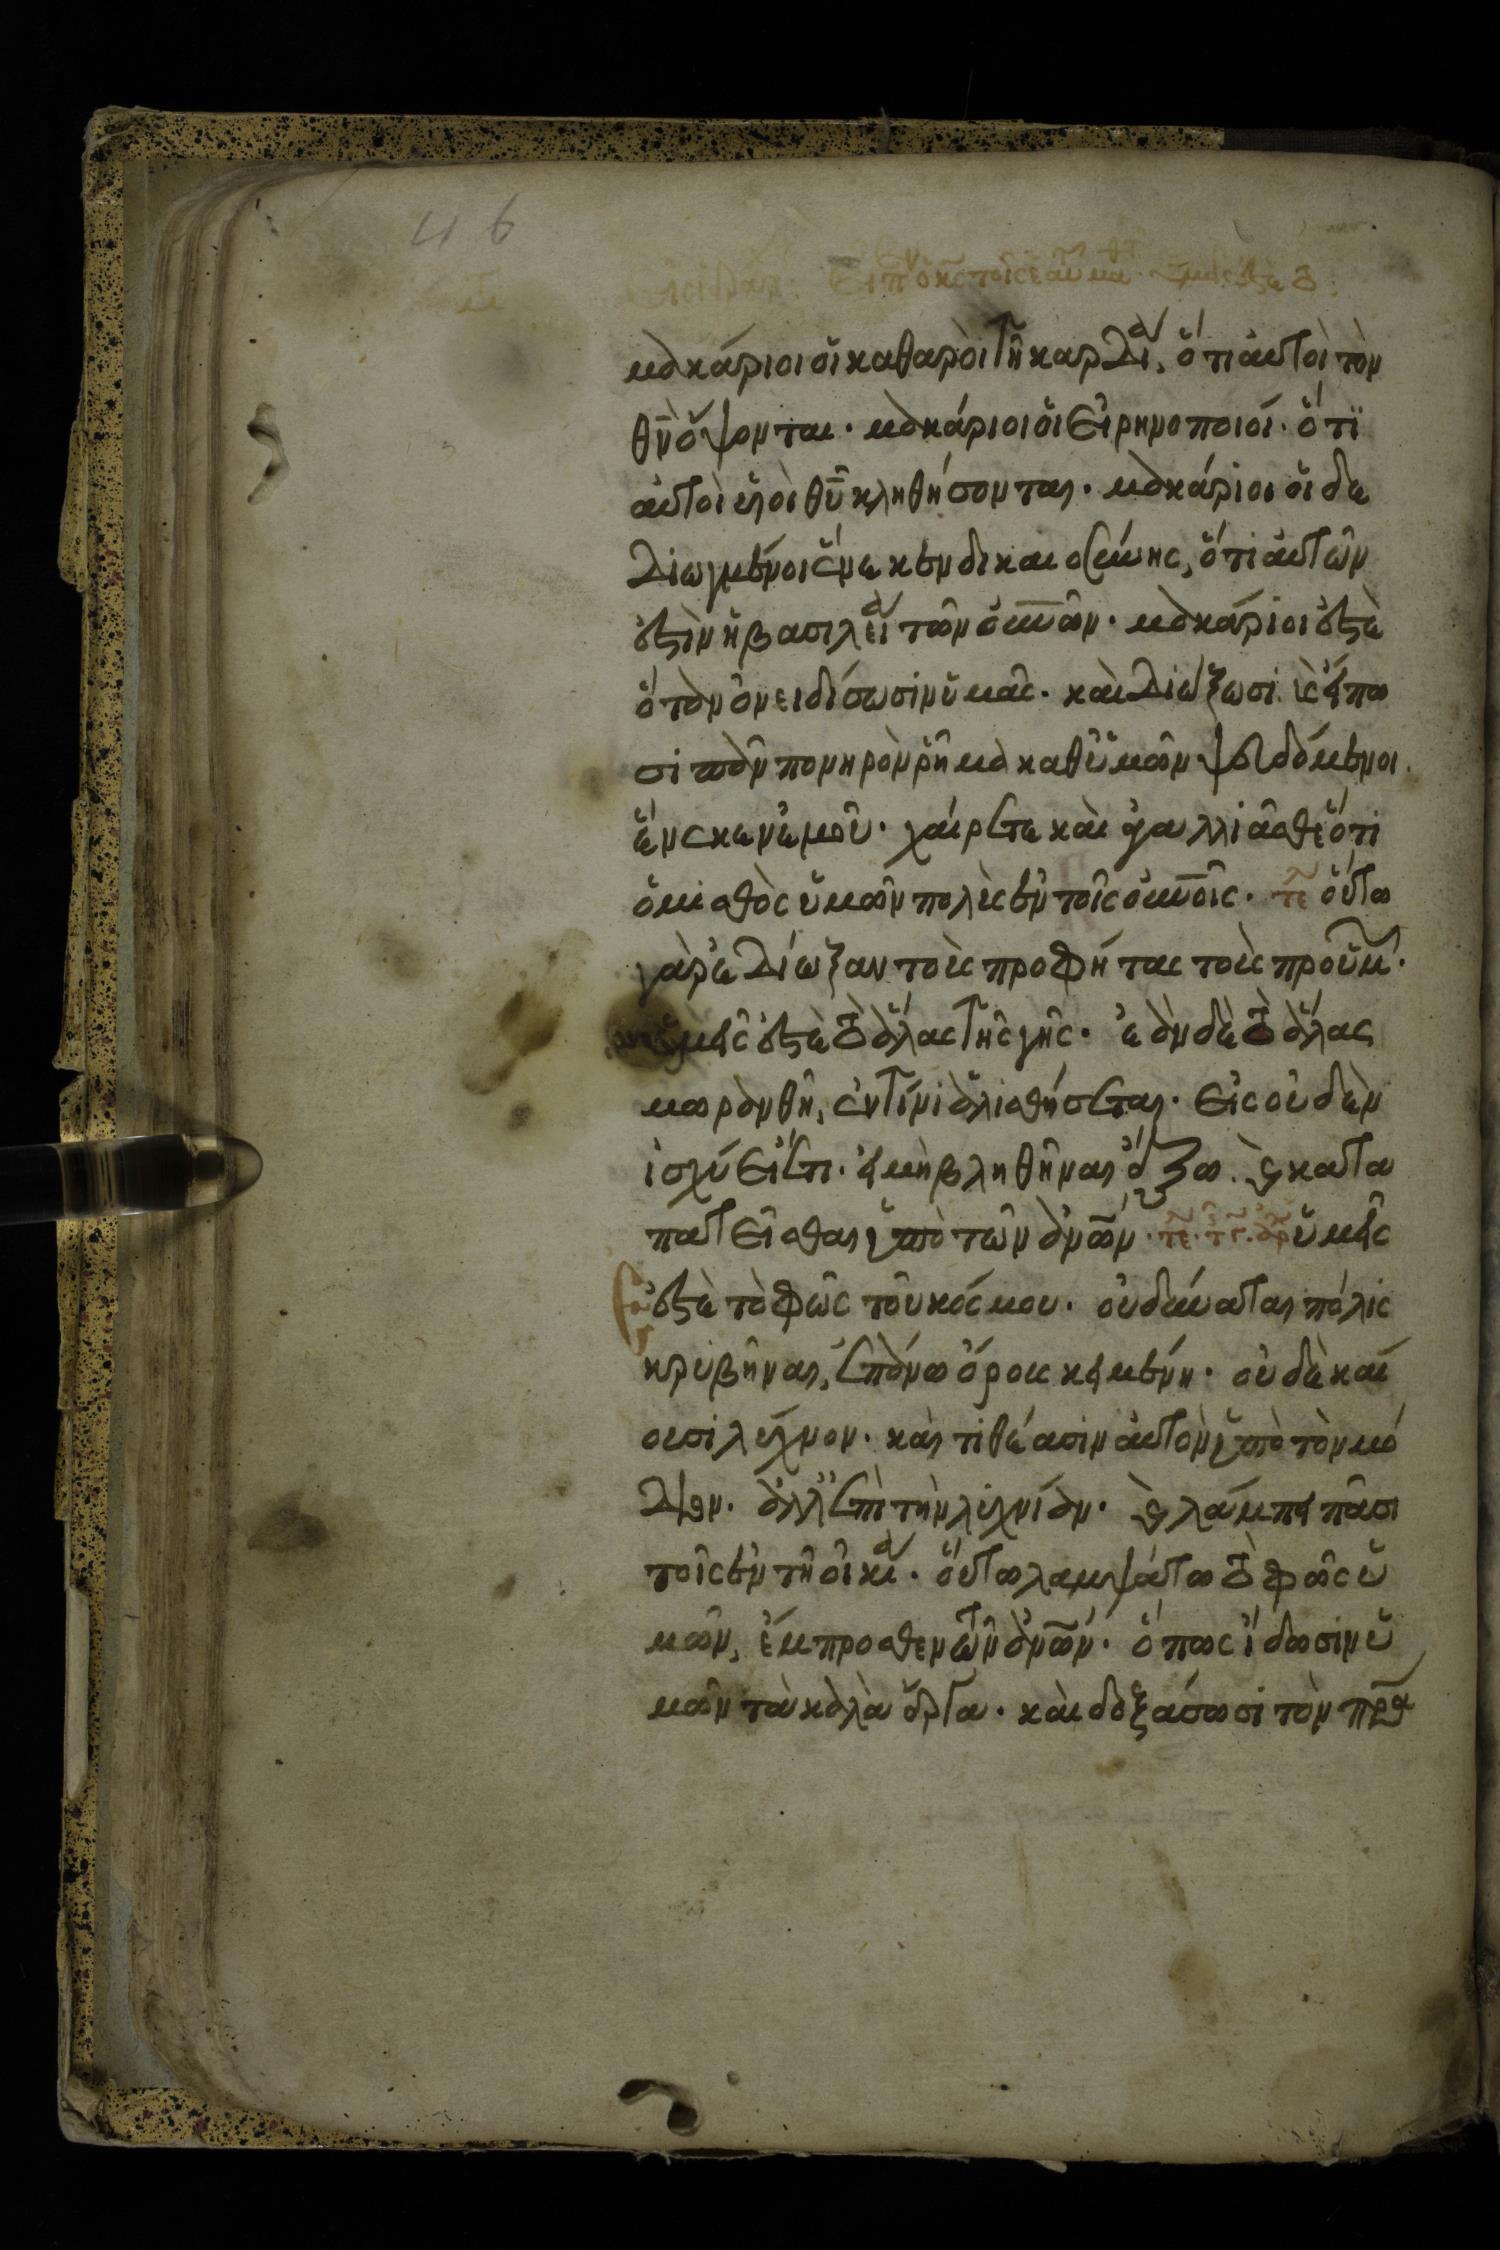 46
εἶπεν ὁ κς τοῖς ἑαυτοῦ μαθτ. ὑμεῖς ἐστὲ τὸ
μακάριοι οἱ καθαροὶ τῆ καρδία, ὅτι αὐτοὶ τὸν
θν ὄψονται. μακάριοι οἱ εἰρηνοποιοί. ὅτι
αὐτοὶ υἱοὶ θυ κληθήσονται. μακάριοι οἱ δε
διωγμένοι ἕνεκεν δικαιοσύνης, ὅτι αὐτῶν
ἐστὶν ἡ βασιλεία τῶν οὐνῶν. μακάριοι ἐστὲ
ὅταν ὀνειδίσωσιν ὑμᾶς. καὶ διώξωσι. καὶ εἴπω
σι πᾶν πονηρὸν ρῆμα καθ' ὑμῶν ψευδόμενοι.
ἕνεκεν ἐμοῦ. χαίρετε καὶ ἀγαλλιᾶσθε ὅτι
ὁ μισθὸς ὑμῶν πολὺς ἐν τοῖς οὐνοῖς. τε οὕτω
γὰρ ἐδίωξαν τοὺς προφήτας τοὺς πρὸ ὑμῶν.
ὑμεῖς ἐστὲ τὸ ἅλας τῆς γῆς. ἐὰν δὲ τὸ ἅλας
μωρανθῆ, ἐν τίνι ἁλισθήσεται. εἰς οὐδὲν
ἰσχύει ἔτι. εἰ μὴ βληθῆναι ἔξω. καὶ κατα
πατεῖσθαι ὑπὸ τῶν ἀνων. τε. ὑμεῖς
ἐστὲ τὸ φῶς τοῦ κόσμου. οὐ δύναται πόλις
κρυβῆναι, ἐπάνω ὄρους κειμένη. οὐδὲ καί
ουσι λύχνον. καὶ τιθέασιν αὐτὸν ὑπὸ τὸν μό
διον. ἀλλ' ἐπὶ τὴν λυχνίαν. καὶ λάμπει πᾶσι
τοῖς ἐν τῆ οἰκία. οὕτω λαμψάτω τὸ φῶς ὑ
μῶν, ἔμπροσθεν τῶν ἀνων. ὅπως ἴδωσιν ὑ
μῶν τὰ καλὰ ἔργα. καὶ δοξάσωσι τὸν πρα